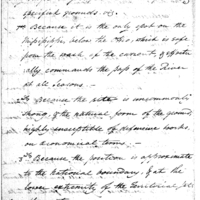 specified grounds viz.
1st Because it is the only spot on the
Mississippi, below the Ohio, which is safe
from the wash of the current, & effectu-
ally commands the pass of the River
at all seasons.
2nd Because the site is uncommonly
strong & the natural form of the ground,
highly susceptible of defensive works,
on economical terms.
3rd Because the position is approximate
to the national boundary, & at the
lower extremity of the Territorial